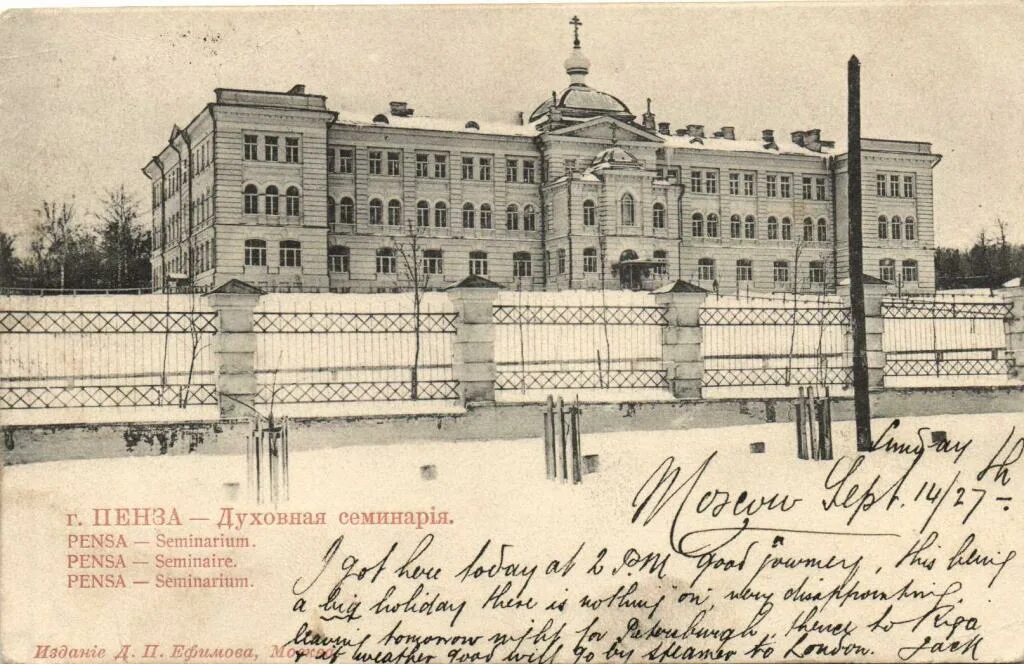 Sunday
Moscow Sept. 14/27th
г. ПЕНЗА — Духовная семинарія.
PENSA — Seminarium.
PENSA — Seminaire.
PENSA — Séminarium.
I got here today at 2 P.M good journey, this being
a big holiday there is nothing on, very disappointing,
leaving tomorrow night for Petersburgh, thence to Riga
& if weather good will go by steamer to London. Jack
Изданіе Д. П. Ефимова, Москва